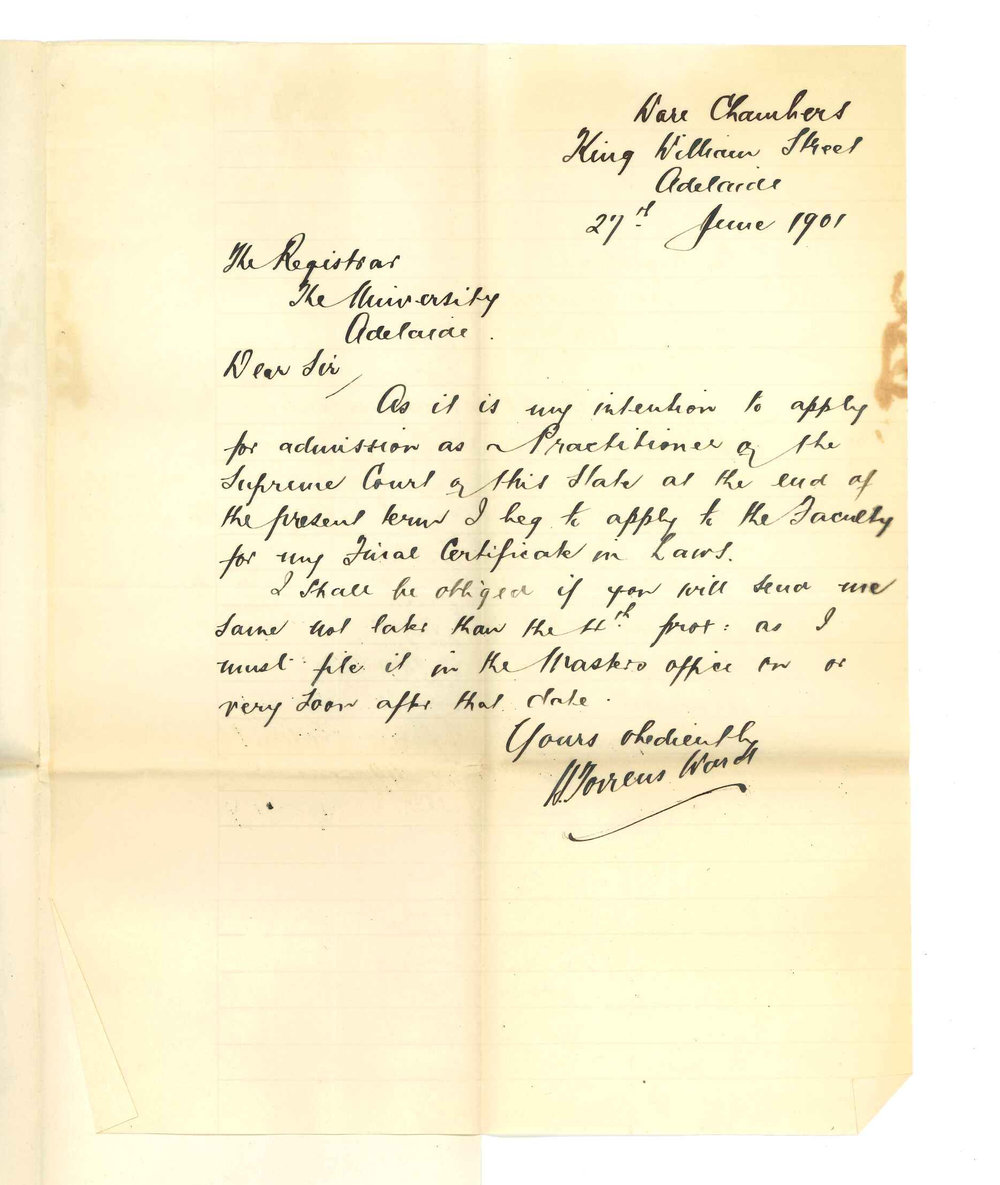 Ware Chambers
King William Street
Adelaide
27th June 1901
The Registrar
The University
Adelaide.
Dear Sir,
As it is my intention to apply
for admission as a Practitioner of the
Supreme Court of this State at the end of
the present term I beg to apply to the Faculty
for my Final Certificate in Laws.
I shall be obliged if you will send me
same not later than the 4th prox: as I
must file it in the Masters office on or
very soon after that date.
Yours obediently
Torrens Ward